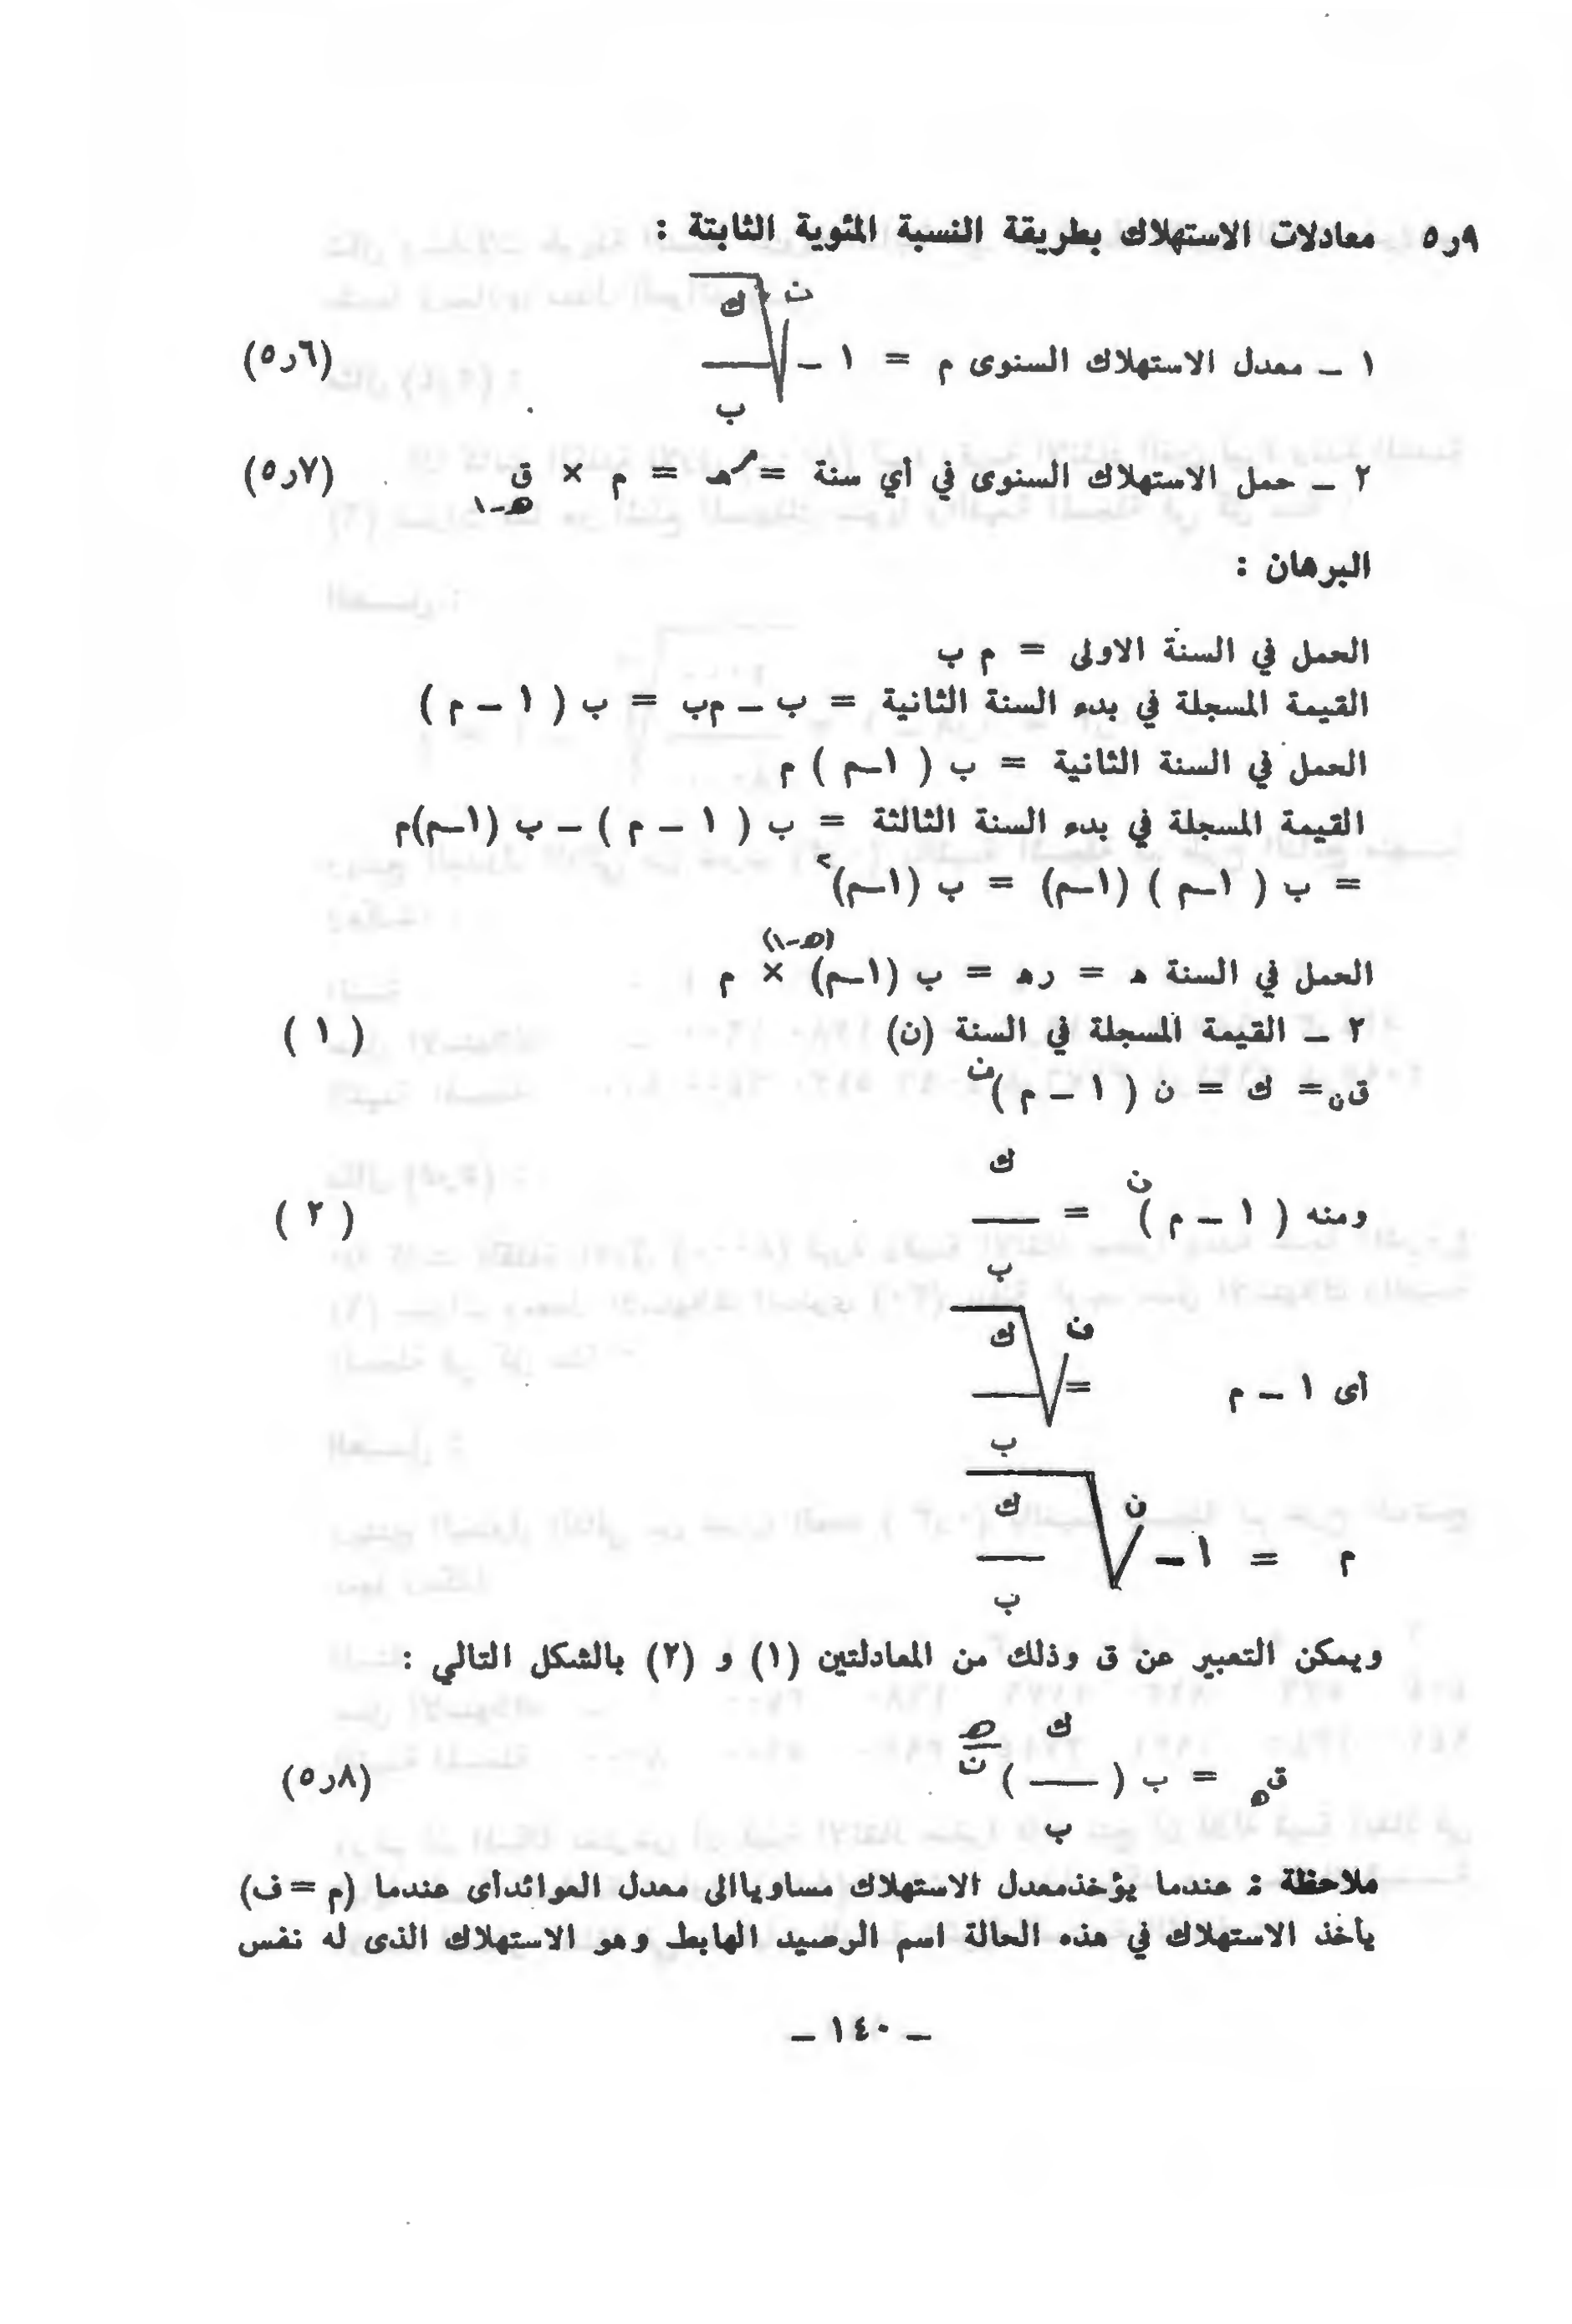 ٥٫٩ معادلات الاستهلاك بطريقة النسبة المئوية الثابتة :
١ ــ معدل الاستهلاك السنوى م = ١ ــ ن√(ك / ب) (٥٫٦)
٢ ــ حمل الاستهلاك السنوى في أي سنة = رهـ = م × ق هـ-١ (٥٫٧)
البرهان :
الحمل في السنة الاولى = م ب
القيمة المسجلة في بدء السنة الثانية = ب ــ م‌ب = ب ( ١ ــ م )
الحمل في السنة الثانية = ب ( ١ــم ) م
القيمة المسجلة في بدء السنة الثالثة = ب ( ١ ــ م ) ــ ب (١ــم)م
= ب ( ١ــم ) (١ــم) = ب (١ــم)٢
الحمل في السنة هـ = رهـ = ب (١ــم)(هـ-١) × م
٢ ــ القيمة المسجلة في السنة (ن) ( ١ )
قن = ك = ن ( ١ ــ م )ن
ومنه ( ١ ــ م )ن = ك / ب ( ٢ )
أى ١ ــ م = ن√(ك / ب)
م = ١ ــ ن√(ك / ب)
ويمكن التعبير عن ق وذلك من المعادلتين (١) و (٢) بالشكل التالي :
قهـ = ب ( ك / ب )هـ/ن (٥٫٨)
ملاحظة : عندما يؤخذمعدل الاستهلاك مساوياالى معدل العوائدأى عندما (م = ف)
يأخذ الاستهلاك في هذه الحالة اسم الرصيد الهابط وهو الاستهلاك الذى له نفس
ــ ١٤٠ ــ